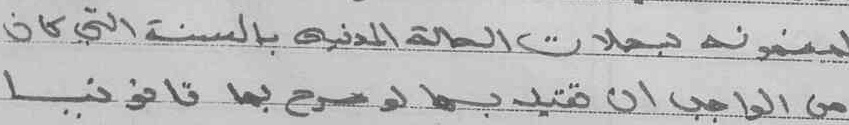 لمضمونه بسجلات الحالة المدنية بالسنة التي كان
من الواجب ان تقيد بها لو صرح بها قانونيا